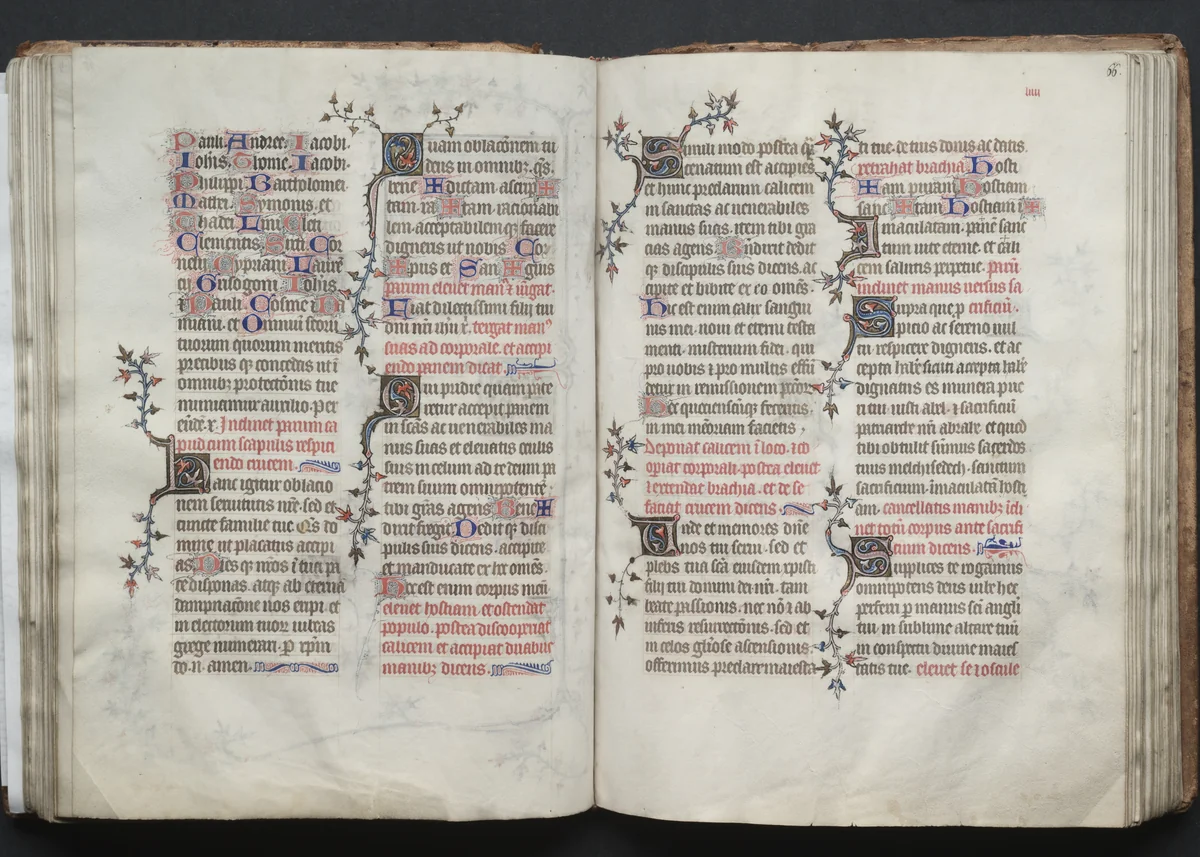 Pauli. Andree. Iacobi.
Ioh̄is. Thome. Iacobi.
Philippi. Bartholomei.
Mathei. Symonis. et
Thadei. Lini. Cleti.
Clementis. Sixti. Cor
nelii. Cypriani. Laurē
cij. Grisogoni. Ioh̄is.
⁊ Pauli. Cosme ⁊ Da
miani. et Omniū sc̄oꝝ
tuorum quorum meritis
precibus qꝫ concedas ut ī
omnibꝫ protectōnis tue
muniamur auxilio. Per
eūdē xp̄. Inclinet parum ca
put cum scapulis respici
endo crucem.
Hanc igitur oblatio
nem seruitutis nr̄e. sed et
cuncte familie tue. Qs̄ do
mine ut placatus accipi
as. Dies qꝫ nr̄os ī tua pa
ce disponas. atqꝫ ab eterna
dampnacōne nos eripi. et
in electorum tuoꝝ iubeas
grege numerari. P xp̄m
do. n. amen.
Quam oblacōnem tu
deus in omnibꝫ. qs̄.
bene ✠ dictam. ascrip ✠
tam. ra ✠ tam. racionabi
lem. acceptabilem qꝫ facere
digneris ut nobis Cor
✠ pus et San ✠ guis
parum eleuet man⁹ ⁊ iūgat.
Fiat dilectissimi filij tui
dn̄i nr̄i ih̄u x̄. tergat man⁹
suas ad corporale. et accipi
endo panem dicat.
Qui pridie quam pate
retur accepit panem
in sc̄as ac uenerabiles ma
nus suas et eleuatis oculis
suis in celum ad te deum pa
trem suum omnipotentē.
tibi grās agens. Bene ✠
dixit fregit. Dedit qꝫ disci
pulis suis dicens. accipite
et manducate ex hc omēs.
Hoc est enim corpus meū.
eleuet hostiam. et ostendat
populo. postea discooperiat
calicem et accipiat duabus
manibꝫ dicens.
66.
iiii
Simili modo postea qꝫ
cenatum est accipiēs
et hunc preclarum calicem
in sanctas ac uenerabiles
manus suas. item tibi gra
cias agens. Bndixit dedit
qꝫ discipulis suis dicens. ac
cipite et bibite ex eo omēs.
Hic est enim calix sangui
nis mei. noui et eterni testa
menti. misterium fidei. qui
pro uobis ⁊ pro multis effū
detur in remissionem pctōꝝ.
Hec quocienscūqꝫ feceritis.
in mei memoriam facietis.
Deponat calicem ī loco. ⁊ co
opiat corporali. postea eleuet
⁊ extendat brachia. et de se
faciat crucem dicens.
Unde et memores dn̄e
nos tui serui. sed et
plebs tua scā eiusdem xp̄isti
filij tui domini dei nr̄i. tam
beate passionis. nec nō ⁊ ab
inferis resurrectōnis. sed et
in celos gl̄iose ascensionis.
offerimus preclare maiesta
ti tue. de tuis donis ac datis.
retrahat brachia. Hosti
✠ am puram. Hostiam
sanc ✠ tam. Hostiam ī ✠
maculatam. panē sanc
tum uite eterne. et cali
cem salutis perpetue. parū
inclinet manus uersus sa
Supra que p crificiū.
picio ac sereno uul
tu. respicere digneris. et ac
cepta habere sicuti accepta habe
dignatus es munera pue
ri tui iusti abel. ⁊ sacrificiū
patriarche nr̄i abrahe. et quod
tibi obtulit sūmus sacerdos
tuus melchisedech. sanctum
sacrificium. imaculatā hosti
am. cancellatis manibꝫ icli
net totū corpus ante sacrifi
cium dicens.
Supplices te rogamus
omnipotens deus iube hec
perferri p manus sc̄i angli
tui. in sublime altare tuū
in conspectu diuine maies
tatis tue. eleuet se ⁊ oscule